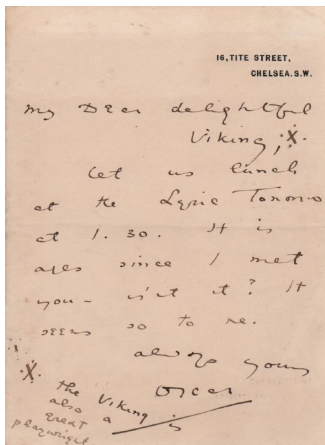 16, TITE STREET,
CHELSEA. S.W.
My Dear delightful
Viking, X
Let us lunch
at the Lyric Tomorrow
at 1.30. It is
ages since I met
you – is't it? It
seems so to me.
always yours
Oscar
X. the Viking is
also a
great
playwright